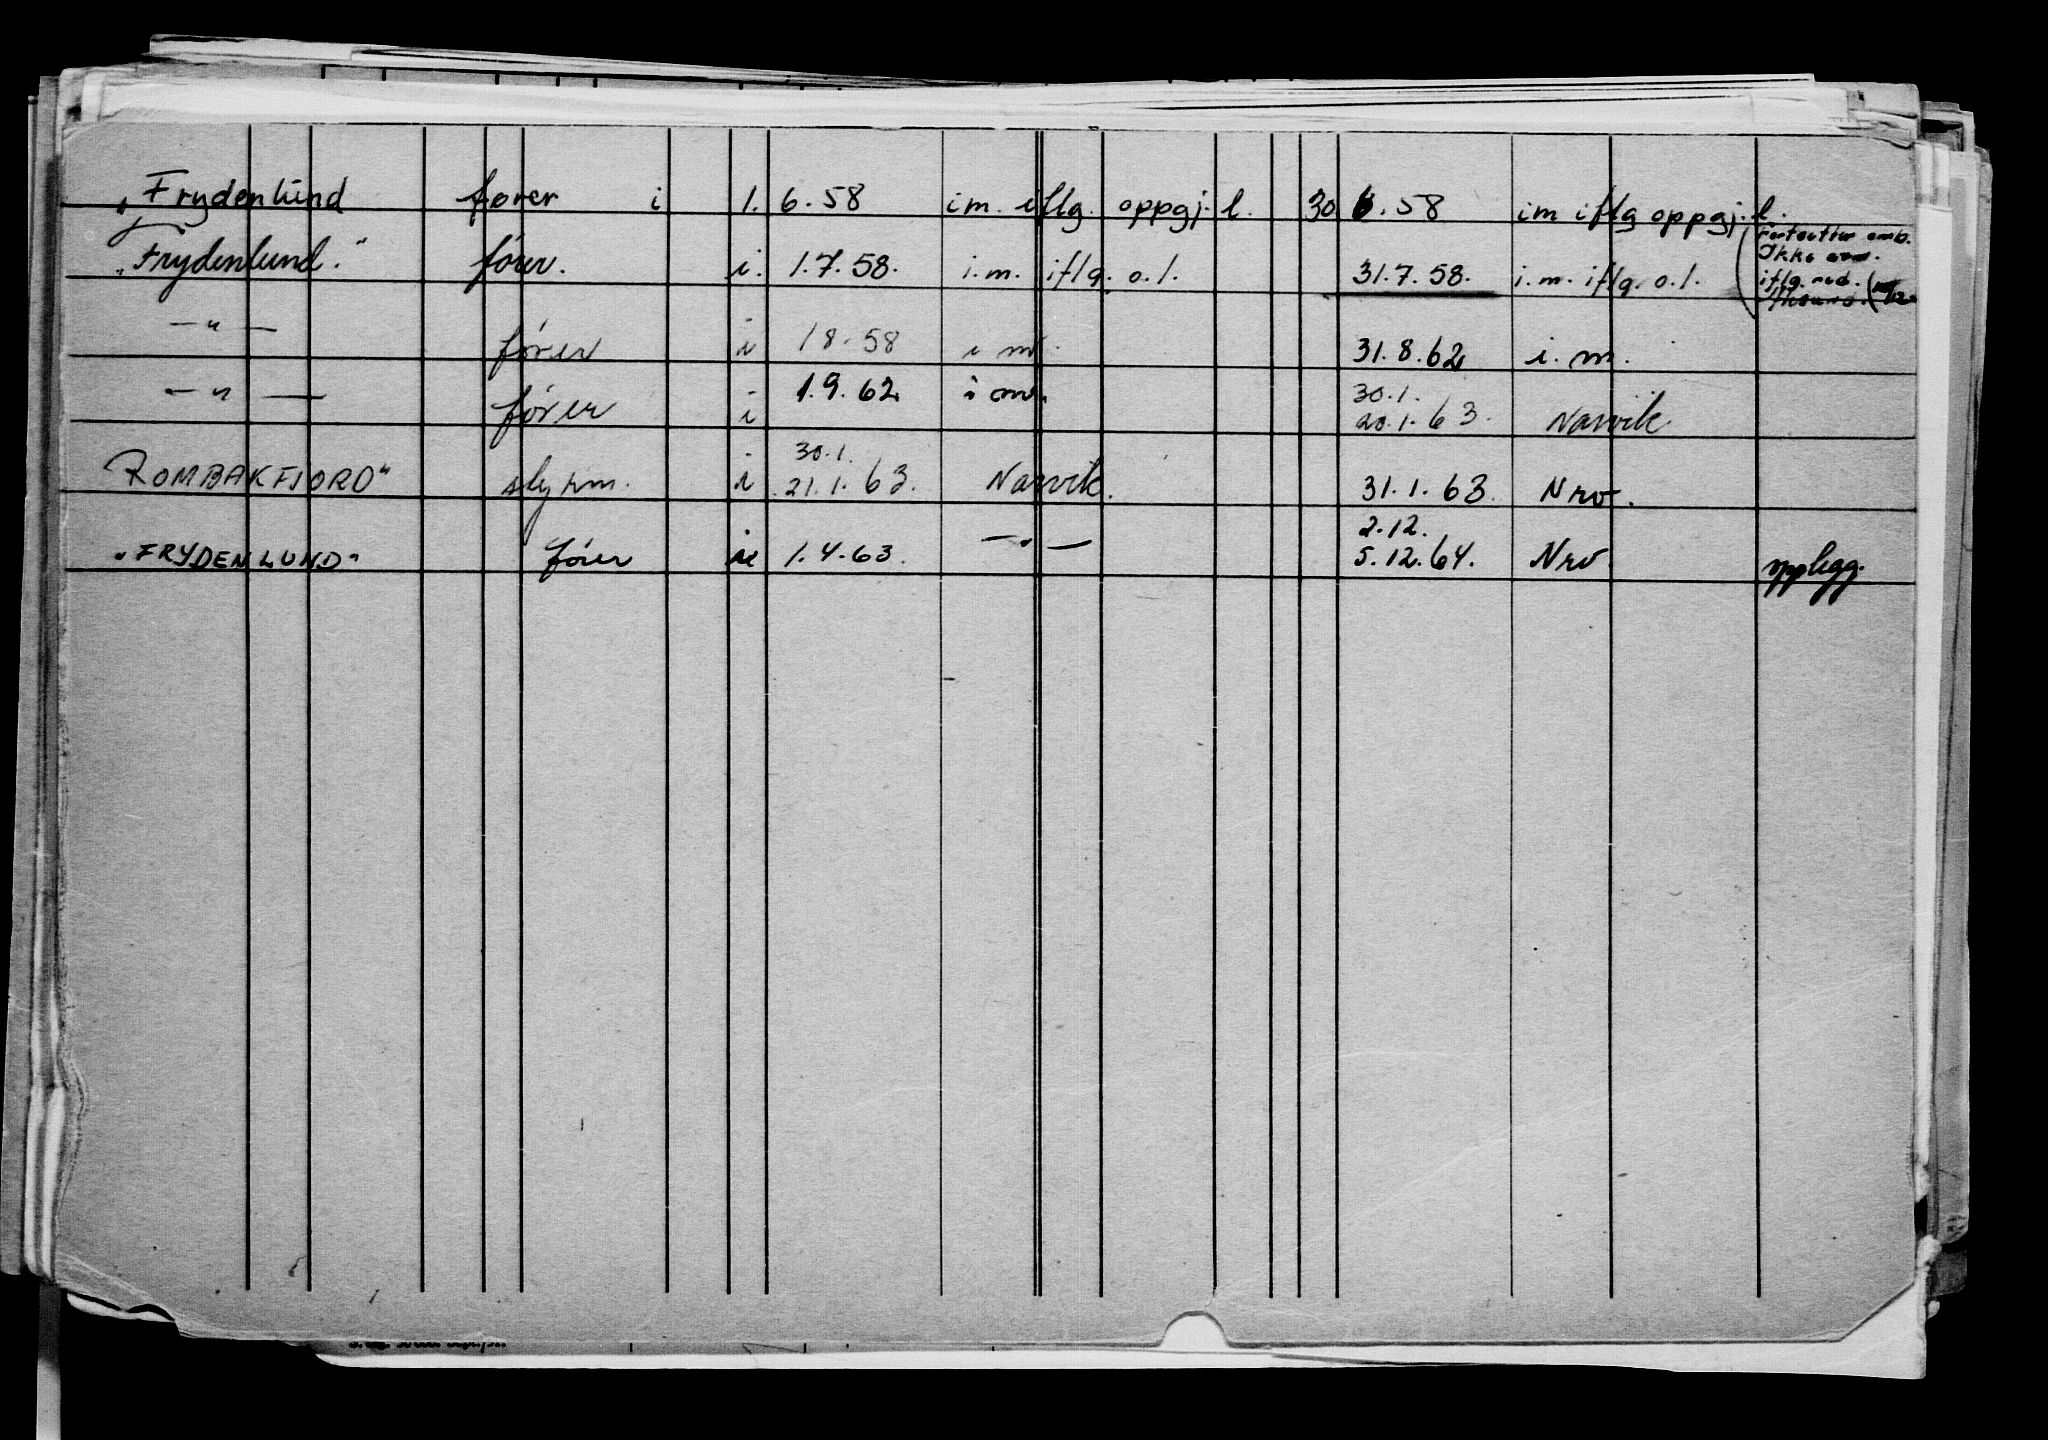 „Frydenlund fører i 1. 6.58 im. iflg. oppgj. l. 30 6.58 im iflg oppgj. l.
„Frydenlund." fører. i. 1.7.58. i.m. iflg. o.l. 31.7.58. i.m. iflg. o.l. (Fortsetter omb.
Ikke
iflg.
— " — fører i 1 8.58 i m. 31.8.62 i. m.
30.1.
— " — fører i 1.9.62. i m. 20.1.63. Narvik
30.1.
ROMBAKFJORD" styrm. i 21.1.63. Narvik. 31.1.63. Nrv.
2.12.
„FRYDENLUND" fører 1.4.63. — " — 5.12.64. Nrv opplegg.